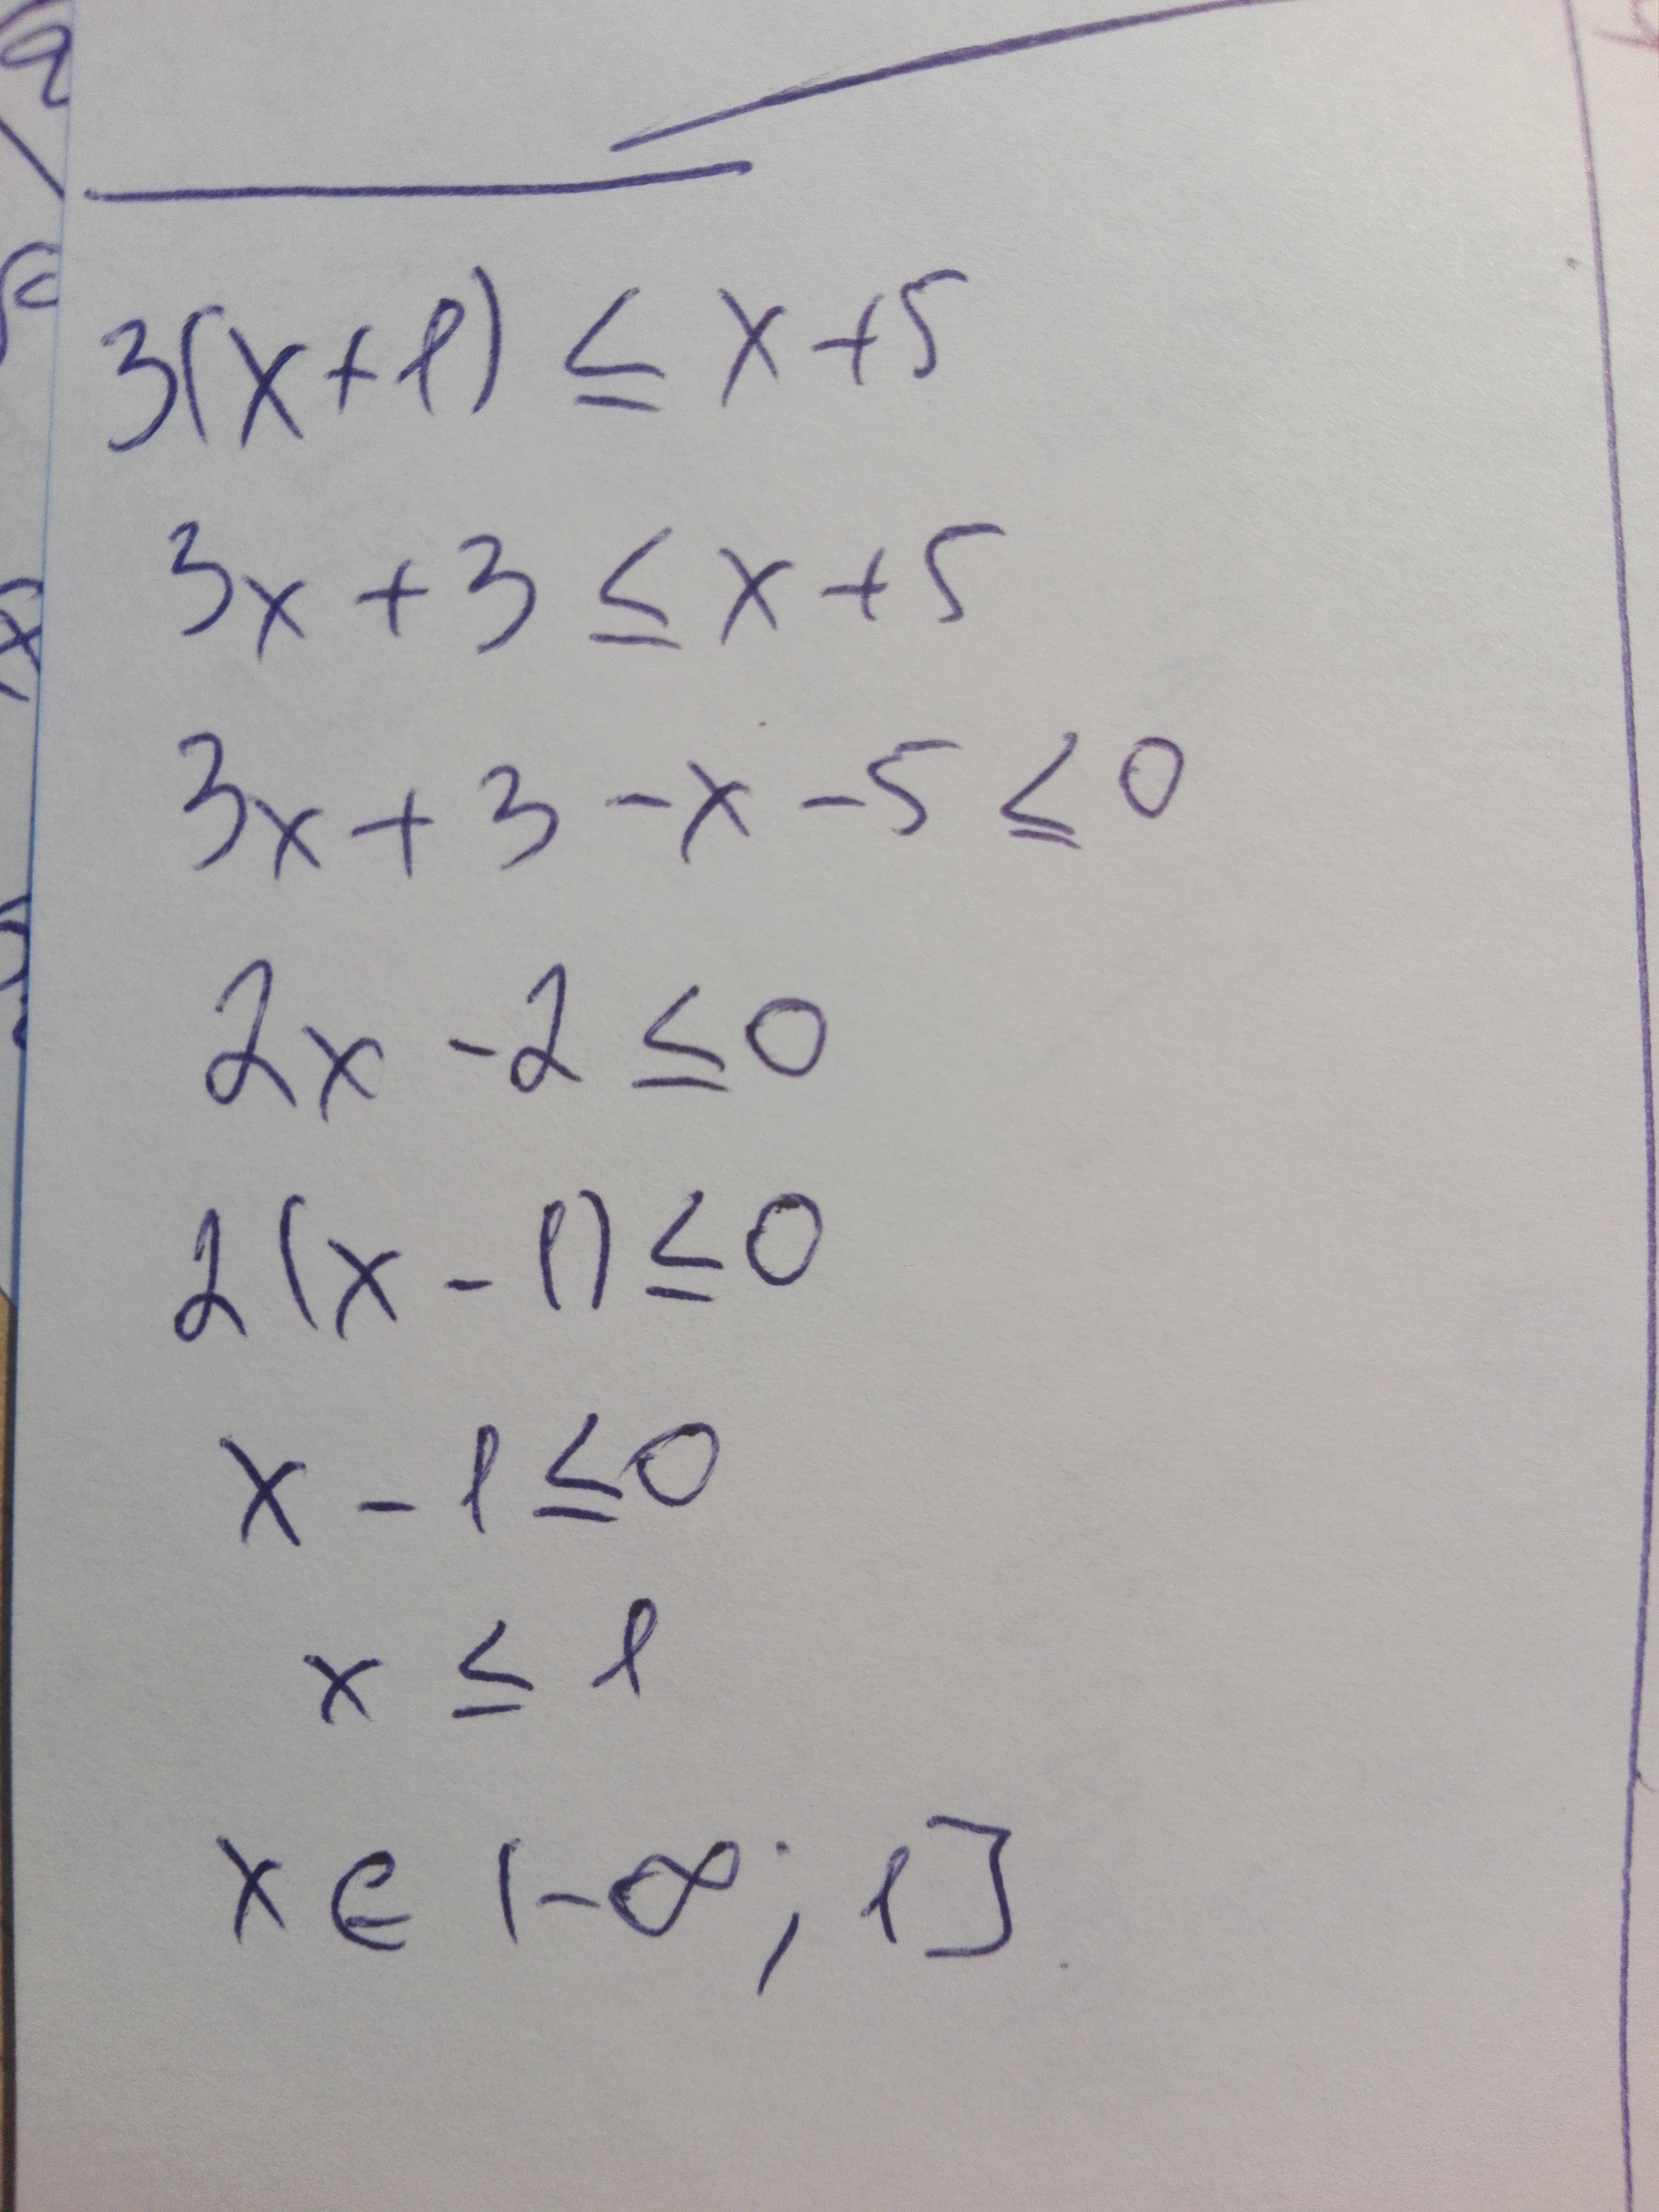 3(x+1) ≤ x+5
3x+3 ≤ x+5
3x+3-x-5 ≤ 0
2x-2 ≤ 0
2(x-1) ≤ 0
x-1 ≤ 0
x ≤ 1
x ∈ (-∞; 1]